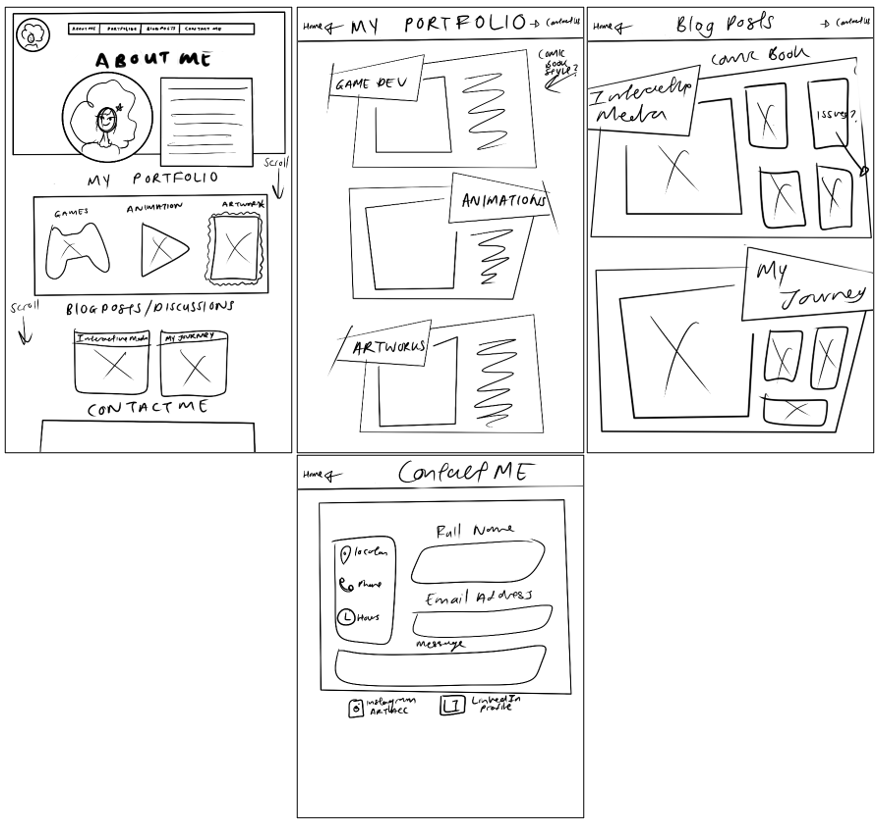 ABOUT ME PORTFOLIO BLOG POSTS CONTACT ME
ABOUT ME
Scroll
MY PORTFOLIO
GAMES ANIMATION ARTWORK
Scroll
BLOG POSTS/DISCUSSIONS
Interactive Media MY JOURNEY
CONTACT ME
Home MY PORTFOLIO Contact Us
Comic
Book
Style?
GAME DEV
ANIMATIONS
ARTWORKS
Home Blog Posts Contact Us
Comic Book
Interactive
Media
Issues?
My
Journey
Home Contact ME
Full Name
location
Phone
Email Address
Hours
Message
Instagram
LinkedIn
Profile